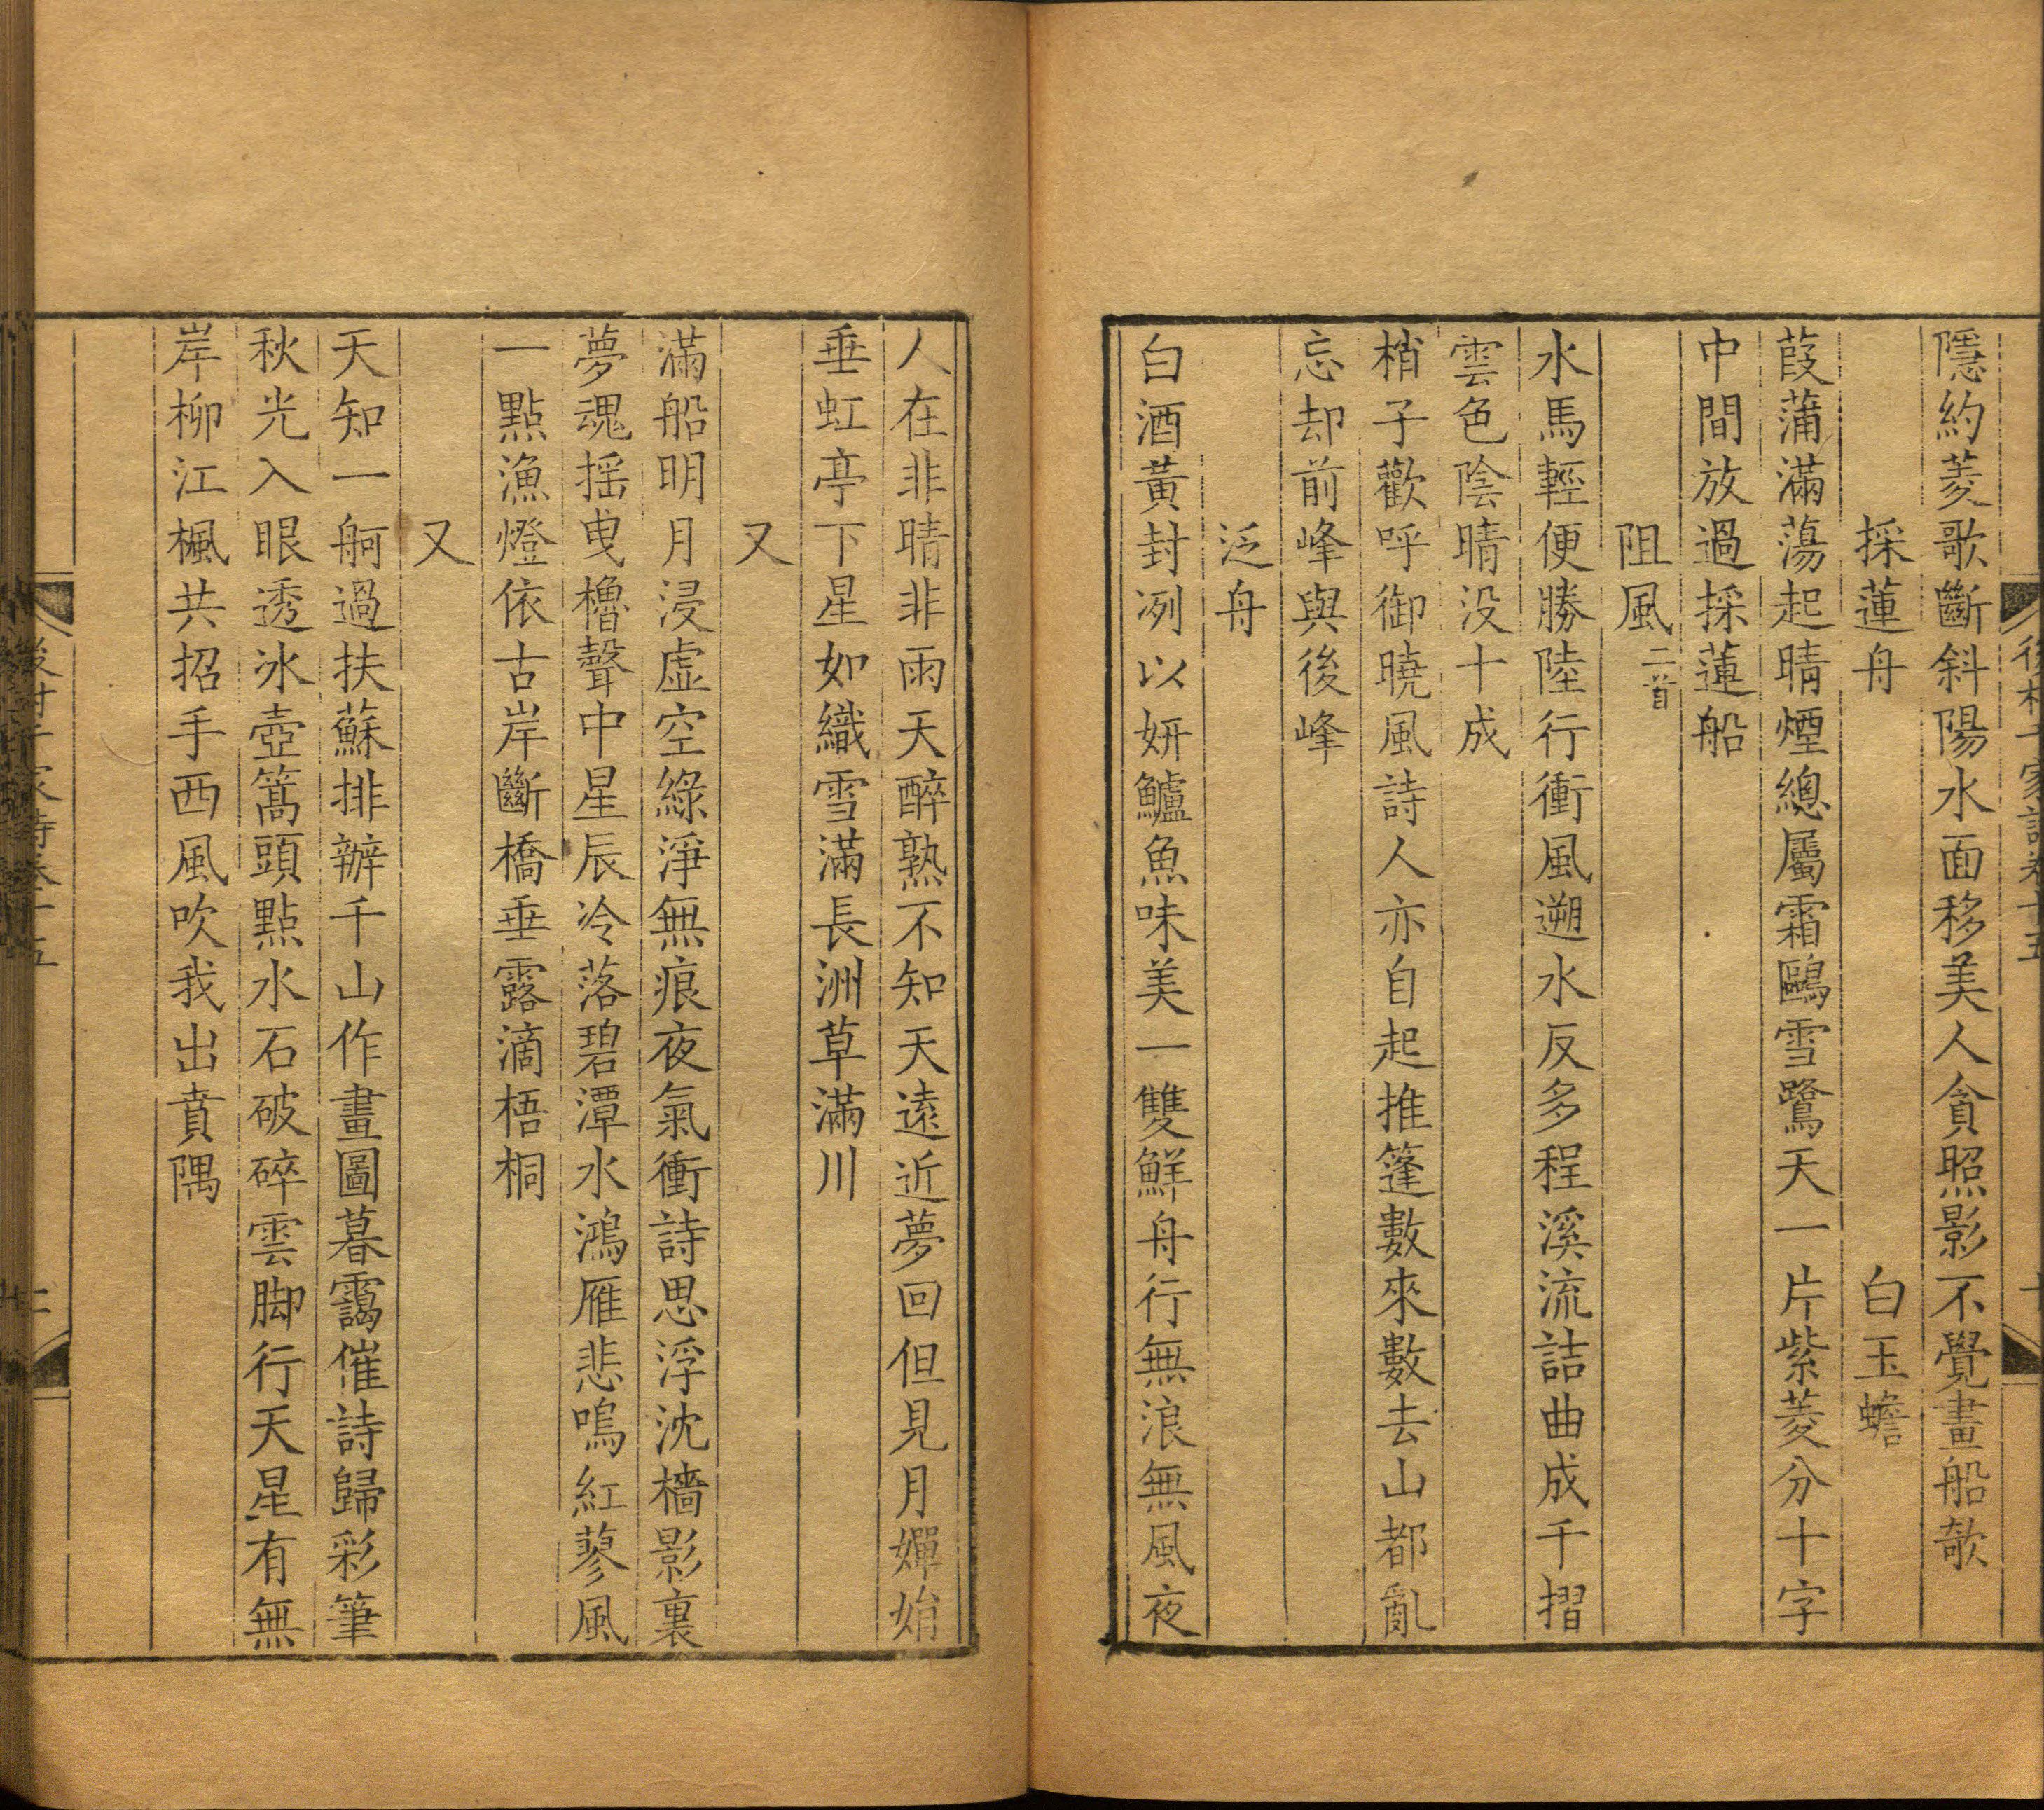 隱約菱歌斷斜陽水面移美人貪照影不覺畫船欹
採蓮舟　白玉蟾
葭蒲滿蕩起晴煙總屬霜鷗雪鷺天一片紫菱分十字
中間放過採蓮船
阻風二首
水馬輕便勝陸行衝風遡水反多程溪流詰曲成千摺
雲色陰晴没十成
梢子歡呼御曉風詩人亦自起推篷數來數去山都亂
忘却前峰與後峰
泛舟
白酒黃封冽以妍鱸魚味美一雙鮮舟行無浪無風夜
人在非晴非雨天醉熟不知天遠近夢回但見月嬋娟
垂虹亭下星如織雪滿長洲草滿川
又
滿船明月浸虛空綠淨無痕夜氣衝詩思浮沈檣影裏
夢魂搖曳櫓聲中星辰冷落碧潭水鴻雁悲鳴紅蓼風
一點漁燈依古岸斷橋垂露滴梧桐
又
天知一舸過扶蘇排辦千山作畫圖暮靄催詩歸彩筆
秋光入眼透冰壺篙頭點水石破碎雲脚行天星有無
岸柳江楓共招手西風吹我出賁隅